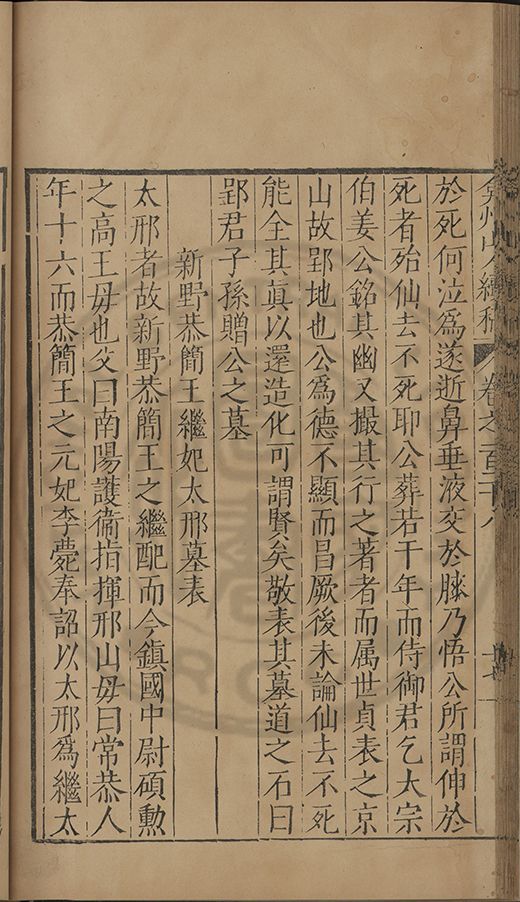 弇州山人續稿 卷之一百二十八
於死何泣爲遂逝鼻垂液交於膝乃悟公所謂伸於
死者殆仙去不死耶公葬若干年而侍御君乞大宗
伯姜公銘其幽又撮其行之著者而属世貞表之京
山故郢地也公爲德不顯而昌厥後未論仙去不死
能全其眞以還造化可謂賢矣敬表其墓道之石曰
郢君子孫贈公之墓
新野恭簡王繼妃太邢墓表
太邢者故新野恭簡王之繼配而今鎮國中尉碩勳
之高王母也父曰南陽護衞指揮邢山母曰常恭人
年十六而恭簡王之元妃李薨奉詔以太邢爲繼太